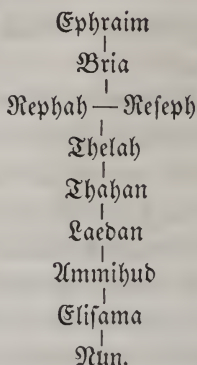 Ephraim
Bria
Rephah — Reſeph
Thelah
Thahan
Laedan
Ammihud
Eliſama
Nun.